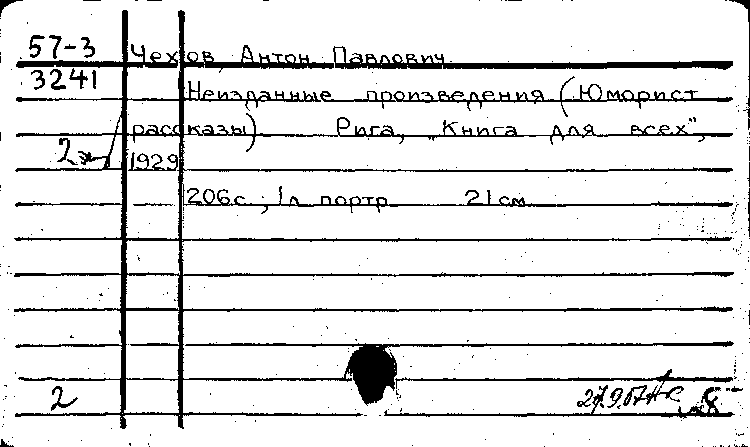 57-3 Чехов, Антон Павлович
3241
Неизданные произведения (Юморист
рассказы) Рига, „Книга для всех",
2 эк 1929
206с.; 1л портр 21см
2